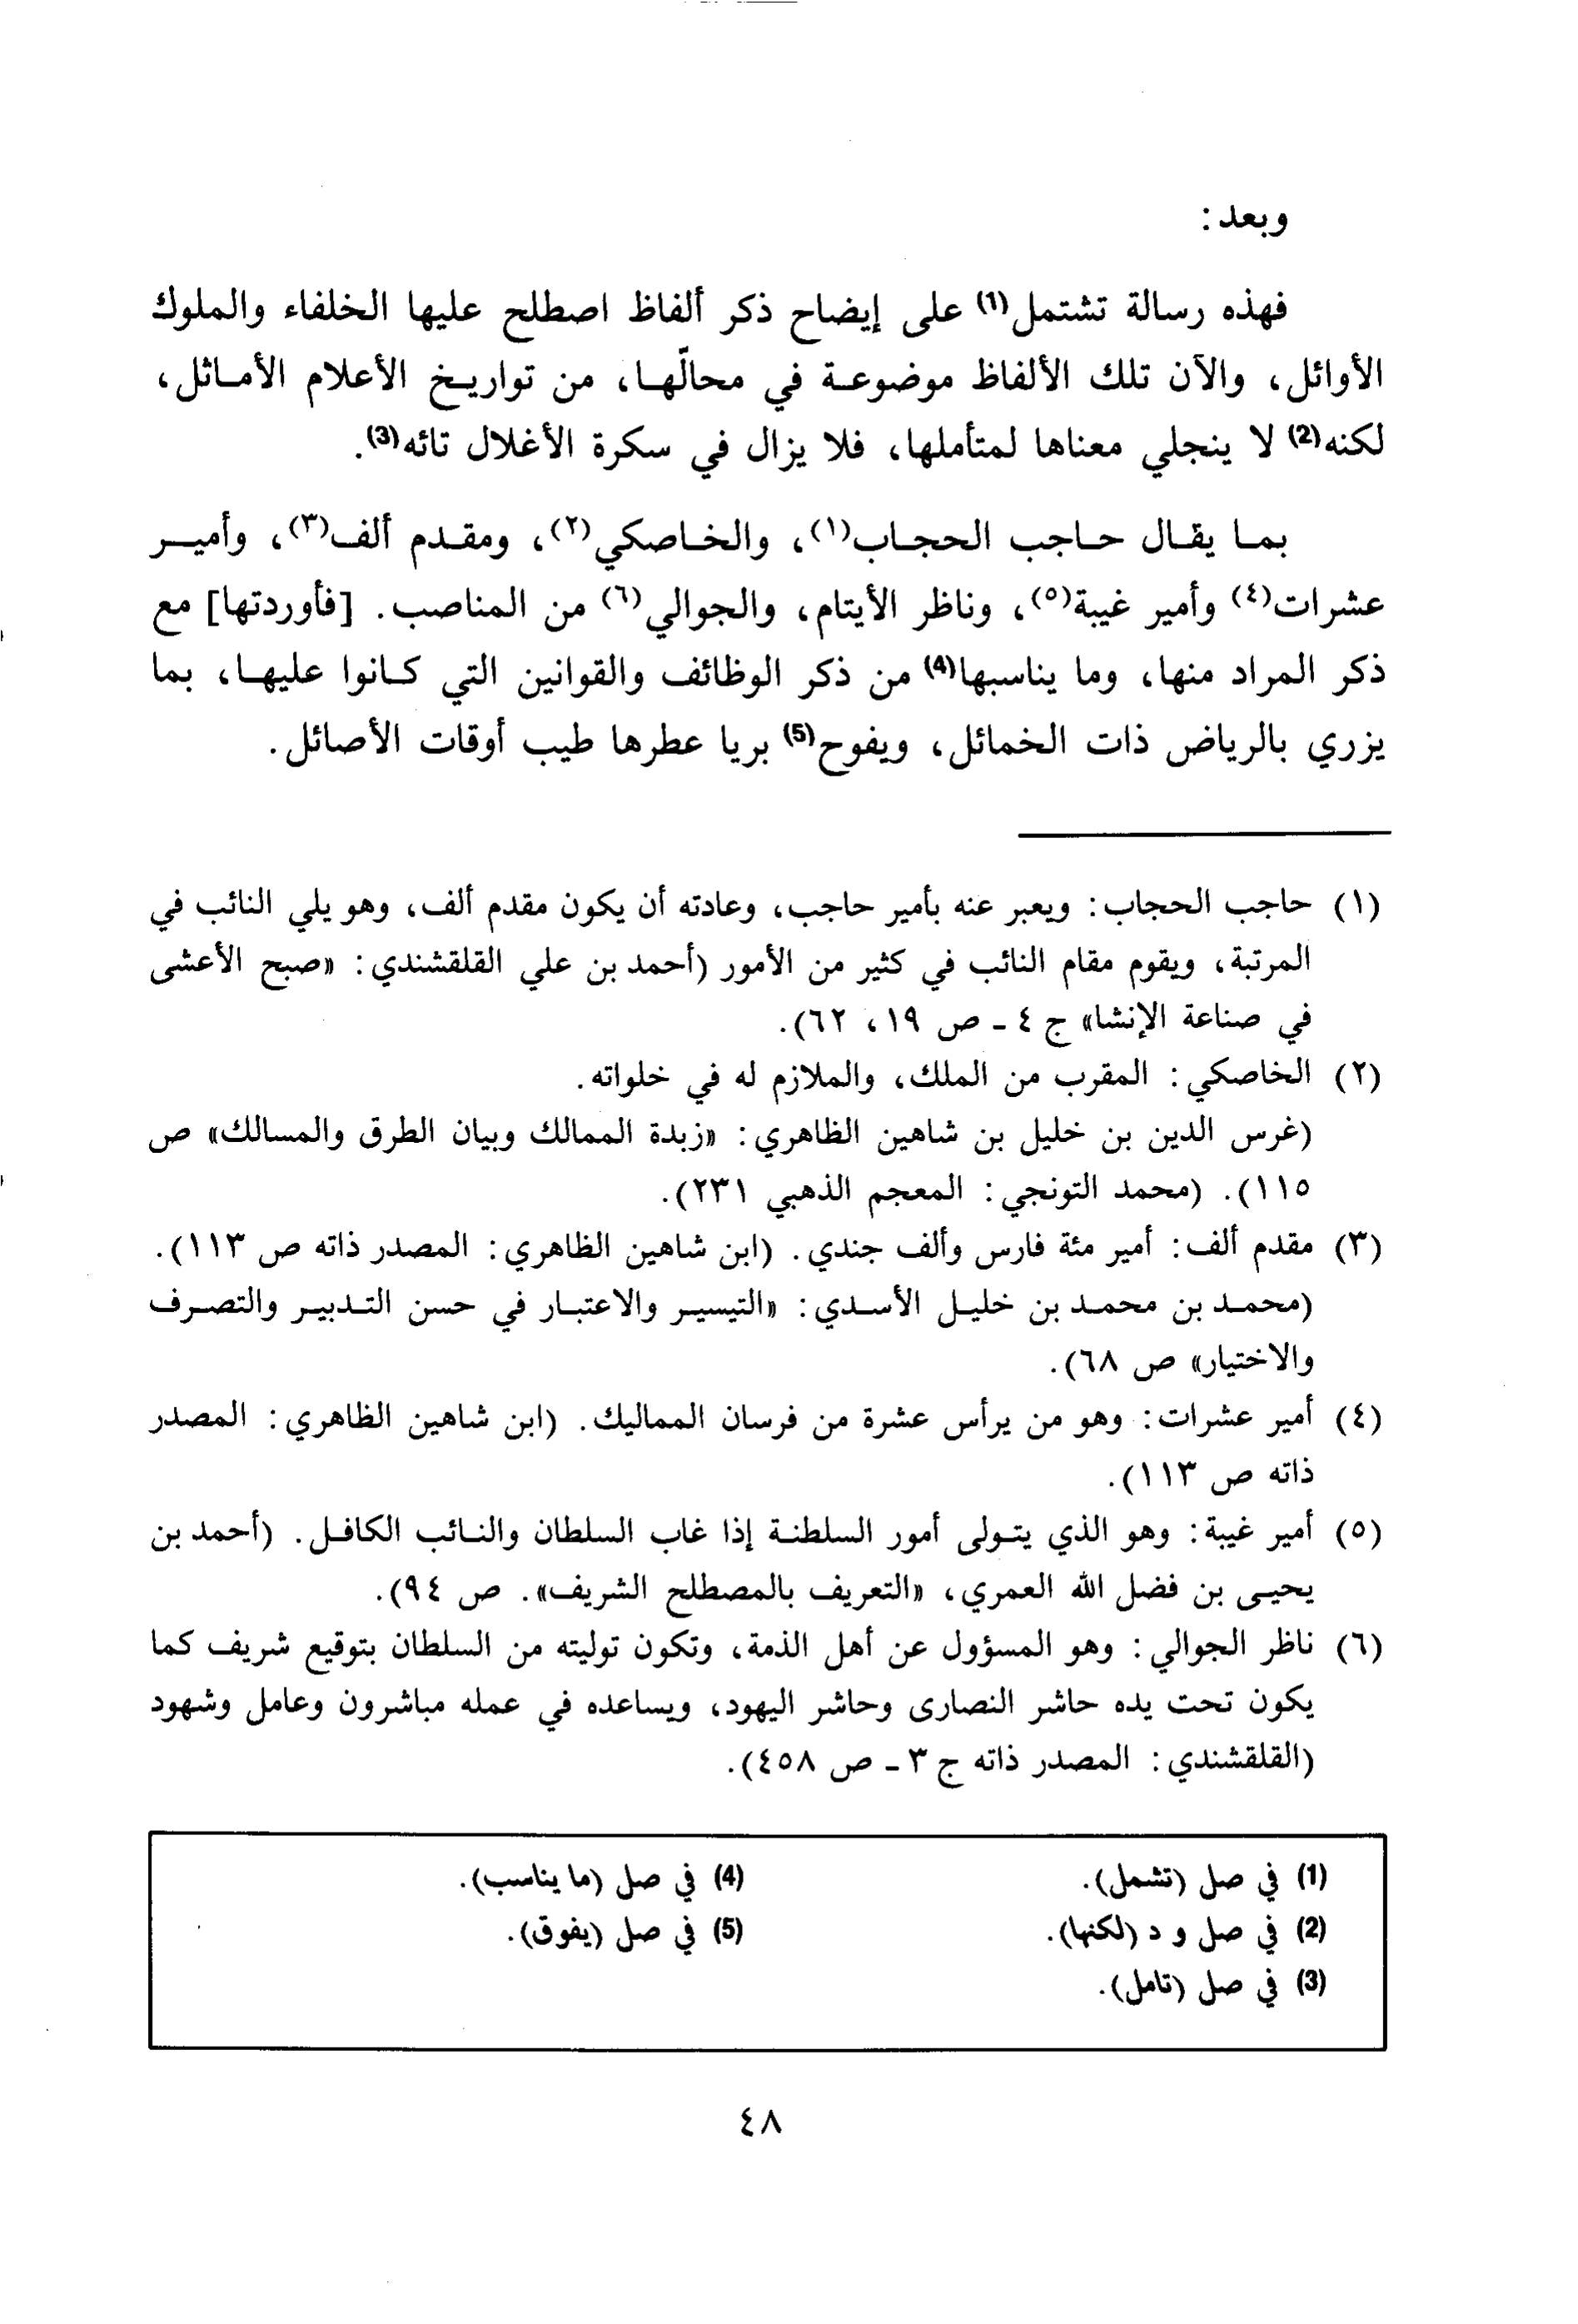 وبعد :
فهذه رسالة تشتمل(1) على إيضاح ذكر ألفاظ اصطلح عليها الخلفاء والملوك
الأوائل، والآن تلك الألفاظ موضوعة في محالّها، من تواريخ الأعلام الأماثل،
لكنه(2) لا ينجلي معناها لمتأملها، فلا يزال في سكرة الأغلال تائه(3).
بما يقال حاجب الحجاب(١)، والخاصكي(٢)، ومقدم ألف(٣)، وأمير
عشرات(٤) وأمير غيبة(٥)، وناظر الأيتام، والجوالي(٦) من المناصب. [فأوردتها] مع
ذكر المراد منها، وما يناسبها(4) من ذكر الوظائف والقوانين التي كانوا عليها، بما
يزري بالرياض ذات الخمائل، ويفوح(5) بريا عطرها طيب أوقات الأصائل.
(١) حاجب الحجاب: ويعبر عنه بأمير حاجب، وعادته أن يكون مقدم ألف، وهو يلي النائب في
المرتبة، ويقوم مقام النائب في كثير من الأمور (أحمد بن علي القلقشندي: «صبح الأعشى
في صناعة الإنشا» ج ٤ - ص ١٩، ٦٢).
(٢) الخاصكي: المقرب من الملك، والملازم له في خلواته.
(غرس الدين بن خليل بن شاهين الظاهري: «زبدة الممالك وبيان الطرق والمسالك» ص
١١٥). (محمد التونجي: المعجم الذهبي ٢٣١).
(٣) مقدم ألف: أمير مئة فارس وألف جندي. (ابن شاهين الظاهري: المصدر ذاته ص ١١٣).
(محمد بن محمد بن خليل الأسدي: «التيسير والاعتبار في حسن التدبير والتصرف
والاختيار» ص ٦٨).
(٤) أمير عشرات: وهو من يرأس عشرة من فرسان المماليك. (ابن شاهين الظاهري: المصدر
ذاته ص ١١٣).
(٥) أمير غيبة: وهو الذي يتولى أمور السلطنة إذا غاب السلطان والنائب الكافل. (أحمد بن
يحيى بن فضل الله العمري، «التعريف بالمصطلح الشريف». ص ٩٤).
(٦) ناظر الجوالي: وهو المسؤول عن أهل الذمة، وتكون توليته من السلطان بتوقيع شريف كما
يكون تحت يده حاشر النصارى وحاشر اليهود، ويساعده في عمله مباشرون وعامل وشهود
(القلقشندي: المصدر ذاته ج ٣ - ص ٤٥٨).
(1) في صل (تشمل).
(2) في صل و د (لكنها).
(3) في صل (تامل).
(4) في صل (ما يناسب).
(5) في صل (يفوق).
٤٨